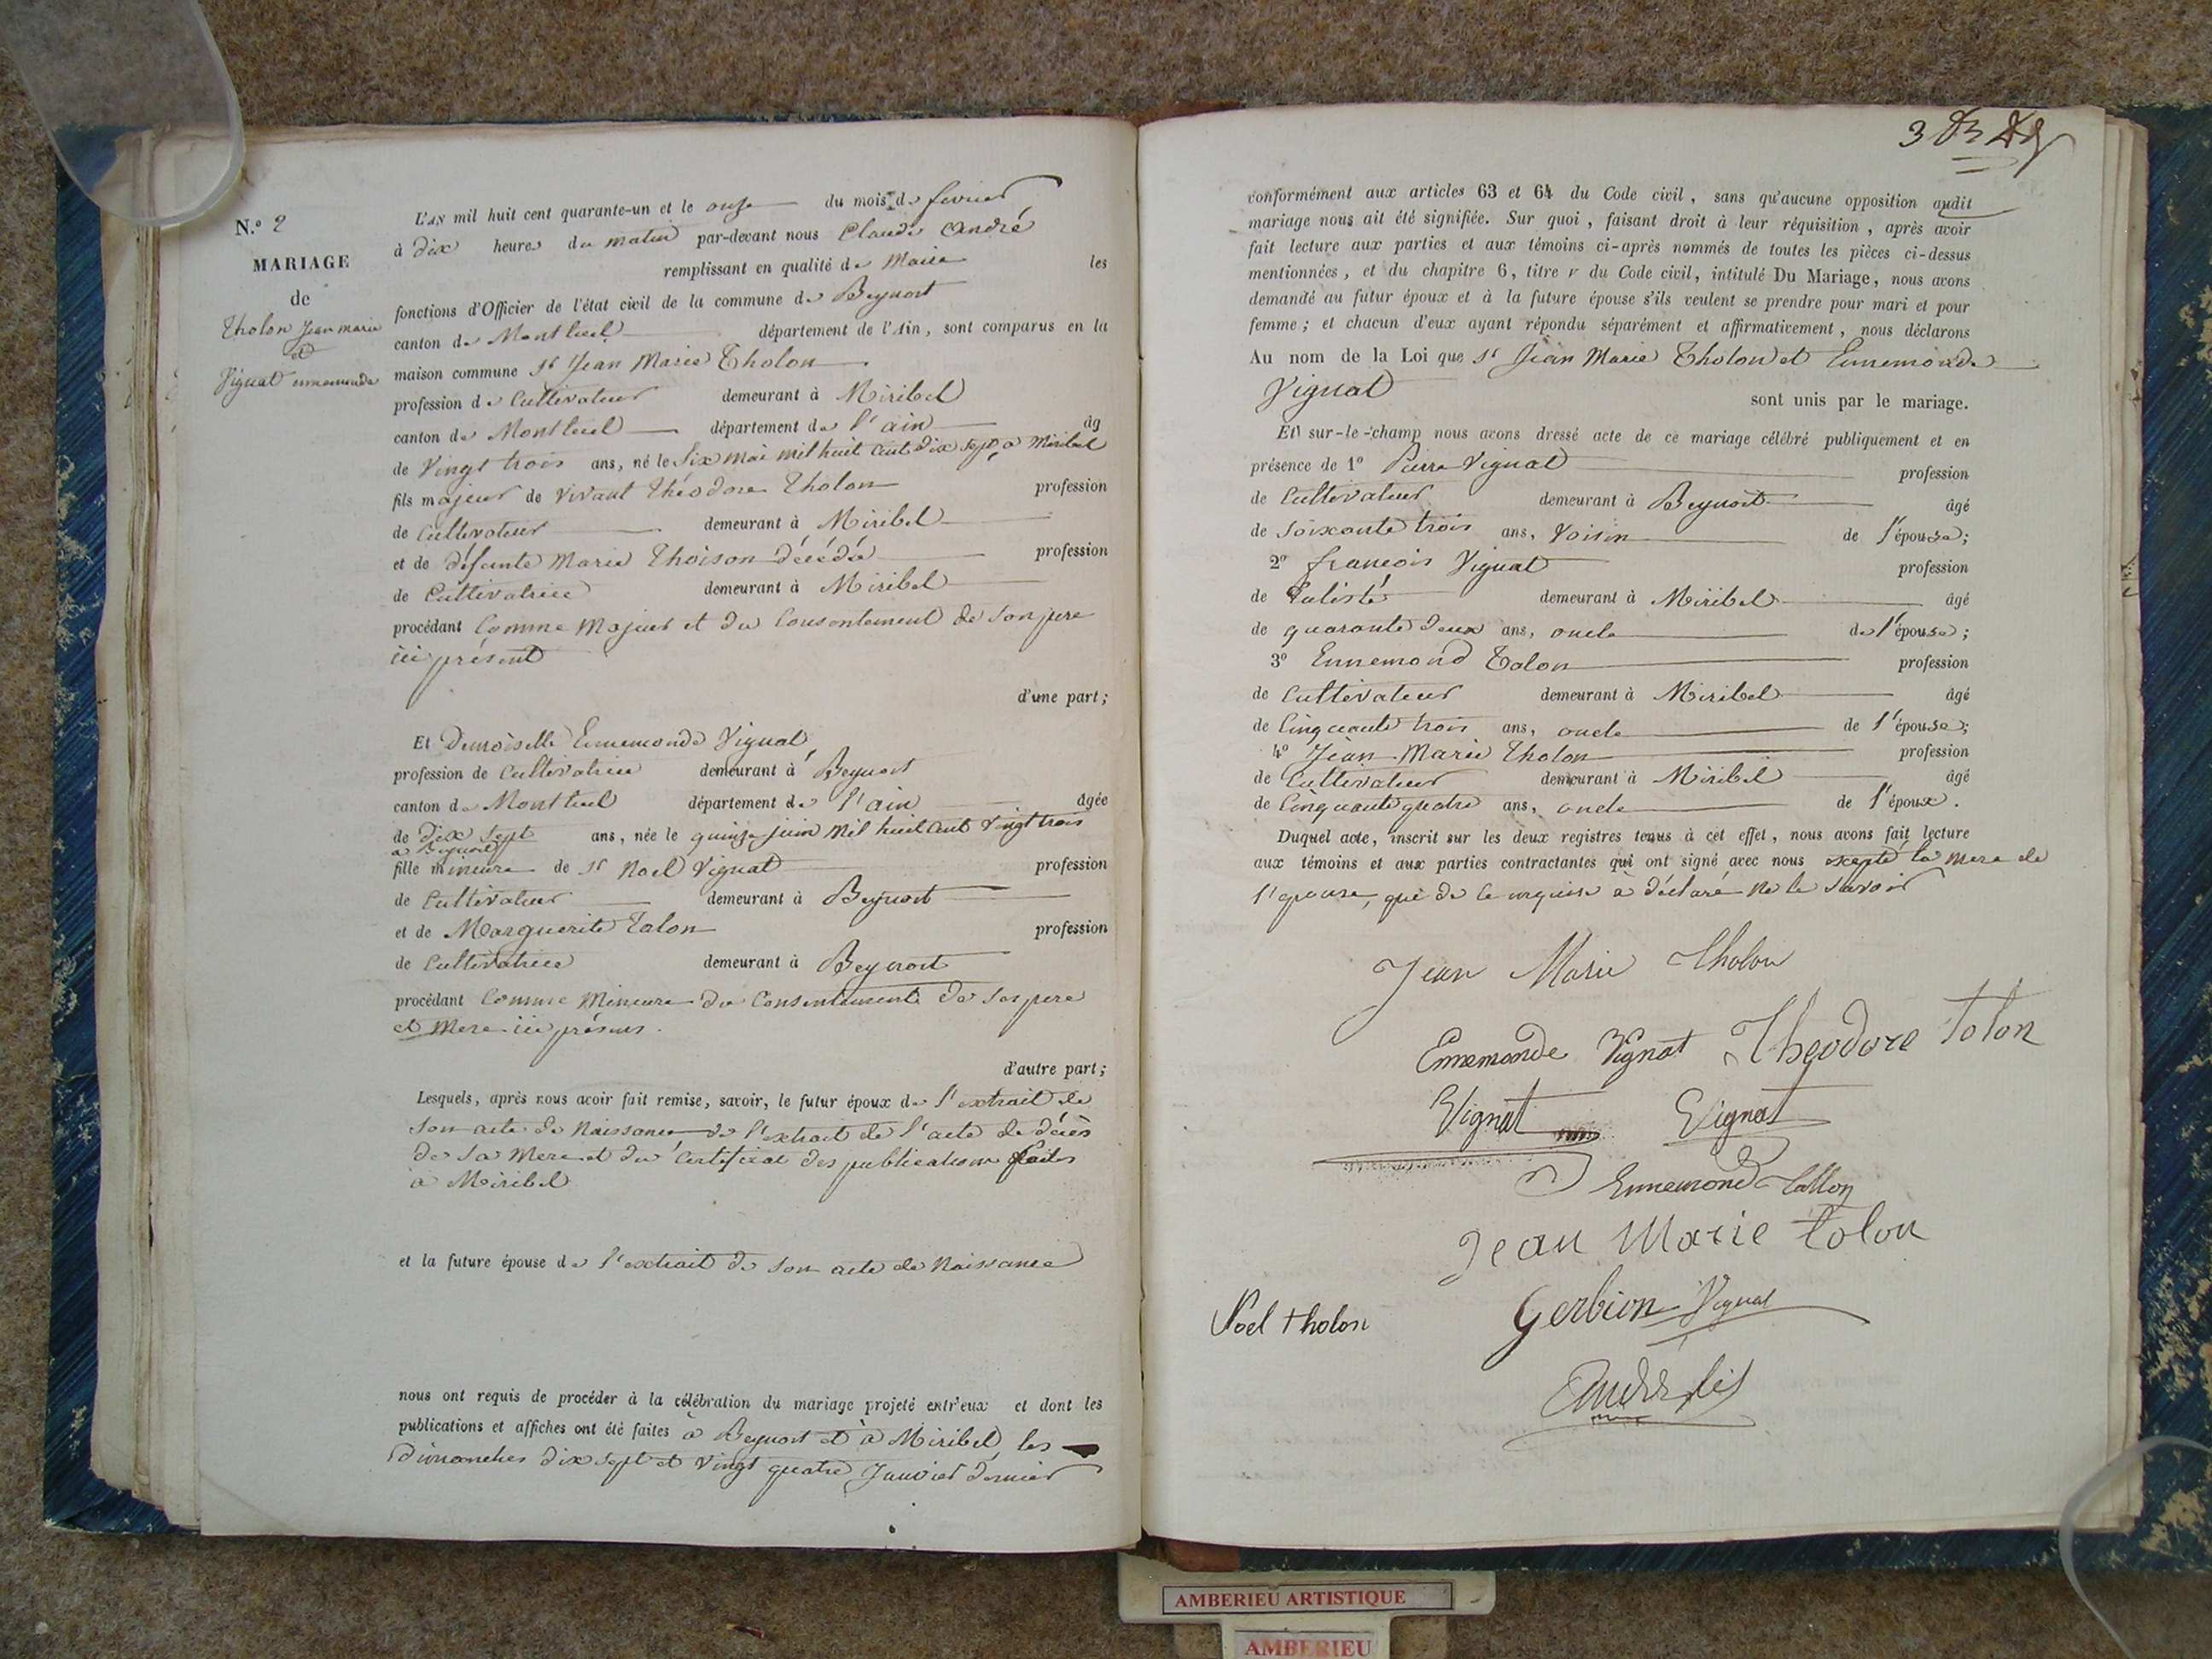 N.º 2
MARIAGE
de
Tholon Jean marie
et
Vignat ennemonde
L'AN mil huit cent quarante-un et le onze du mois de fevrier
à dix heures du matin par-devant nous Claude André
remplissant en qualité de Maire les
fonctions d'Officier de l'état civil de la commune de Beynost
canton de Montluel département de l'Ain, sont comparus en la
maison commune Sr Jean Marie Tholon
profession de Cultivateur demeurant à Miribel
canton de Montluel département de l'ain âg
de Vingt trois ans, né le Six mai mil huit cent dix sept a Miribel
fils majeur de vivant Théodore Tholon profession
de Cultivateur demeurant à Miribel
et de défunte Marie Thoison décédée profession
de Cultivatrice demeurant à Miribel
procédant Comme Majeur et du Consentement de son pere
ici présent
d'une part;
Et Demoiselle Ennemonde Vignat
profession de Cultivatrice demeurant à Beynost
canton de Montluel département de l'ain âgée
de dix sept ans, née le quinze juin Mil huit cent vingt trois
a Beynost
fille mineure de Sr Noel Vignat profession
de Cultivateur demeurant à Beynost
et de Marguerite Talon profession
de Cultivatrice demeurant à Beynost
procédant Comme Mineure du Consentement de ses pere
et Mere ici présens.
d'autre part;
Lesquels, après nous avoir fait remise, savoir, le futur époux de l'extrait de
Son acte de Naissance de l'extrait de l'acte de décès
de Sa Mere et du Certificat des publications faites
à Miribel
et la future épouse de l'extrait de Son acte de Naissance
nous ont requis de procéder à la célébration du mariage projeté entr'eux et dont les
publications et affiches ont été faites à Beynost et à Miribel les
dimanches dix sept et Vingt quatre Janvier dernier
3
conformément aux articles 63 et 64 du Code civil, sans qu'aucune opposition audit
mariage nous ait été signifiée. Sur quoi, faisant droit à leur réquisition, après avoir
fait lecture aux parties et aux témoins ci-après nommés de toutes les pièces ci-dessus
mentionnées, et du chapitre 6, titre v du Code civil, intitulé Du Mariage, nous avons
demandé au futur époux et à la future épouse s'ils veulent se prendre pour mari et pour
femme; et chacun d'eux ayant répondu séparément et affirmativement, nous déclarons
Au nom de la Loi que Sr Jean Marie Tholon et Ennemonde
Vignat sont unis par le mariage.
Et sur-le-champ nous avons dressé acte de ce mariage célébré publiquement et en
présence de 1º Pierre Vignat profession
de Cultivateur demeurant à Beynost âgé
de soixante trois ans, Voisin de l'épouse;
2º françois Vignat profession
de demeurant à Miribel âgé
de quarante deux ans, oncle de l'épouse;
3º Ennemond Talon profession
de Cultivateur demeurant à Miribel âgé
de Cinquante trois ans, oncle de l'épouse;
4º Jean Marie Tholon profession
de Cultivateur demeurant à Miribel âgé
de Cinquante quatre ans, oncle de l'époux.
Duquel acte, inscrit sur les deux registres tenus à cet effet, nous avons fait lecture
aux témoins et aux parties contractantes qui ont signé avec nous excepté la mere de
l'epouse, qui de ce requise à déclaré ne le savoir
Jean Marie Tholon
Ennemonde Vignat Theodore Tolon
Vignat Vignat
Ennemond tallon
Jean Marie tolon
Noel tholon
Gerbion Vignat
AMBERIEU ARTISTIQUE
AMBERIEU